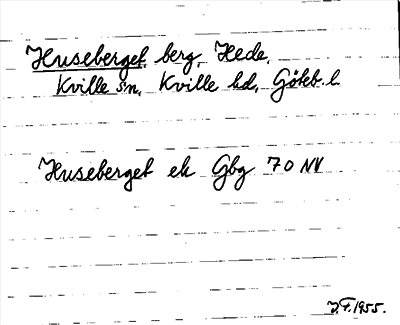 Huseberget, berg, Hede,
Kville sn, Kville hd, Göteb. l.
Huseberget ek Gbg 70 NV
J.F. 1955.